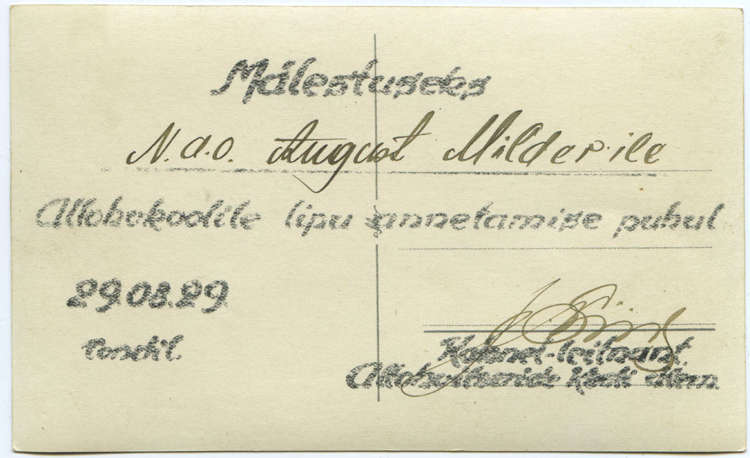 Mälestuseks
N.a.o. August Milderile
Allohvkoolile lipu annetamise puhul
29.08.29
Tondil.
Kolonel-leitnant.
Allohvitseride Kooli ülem.